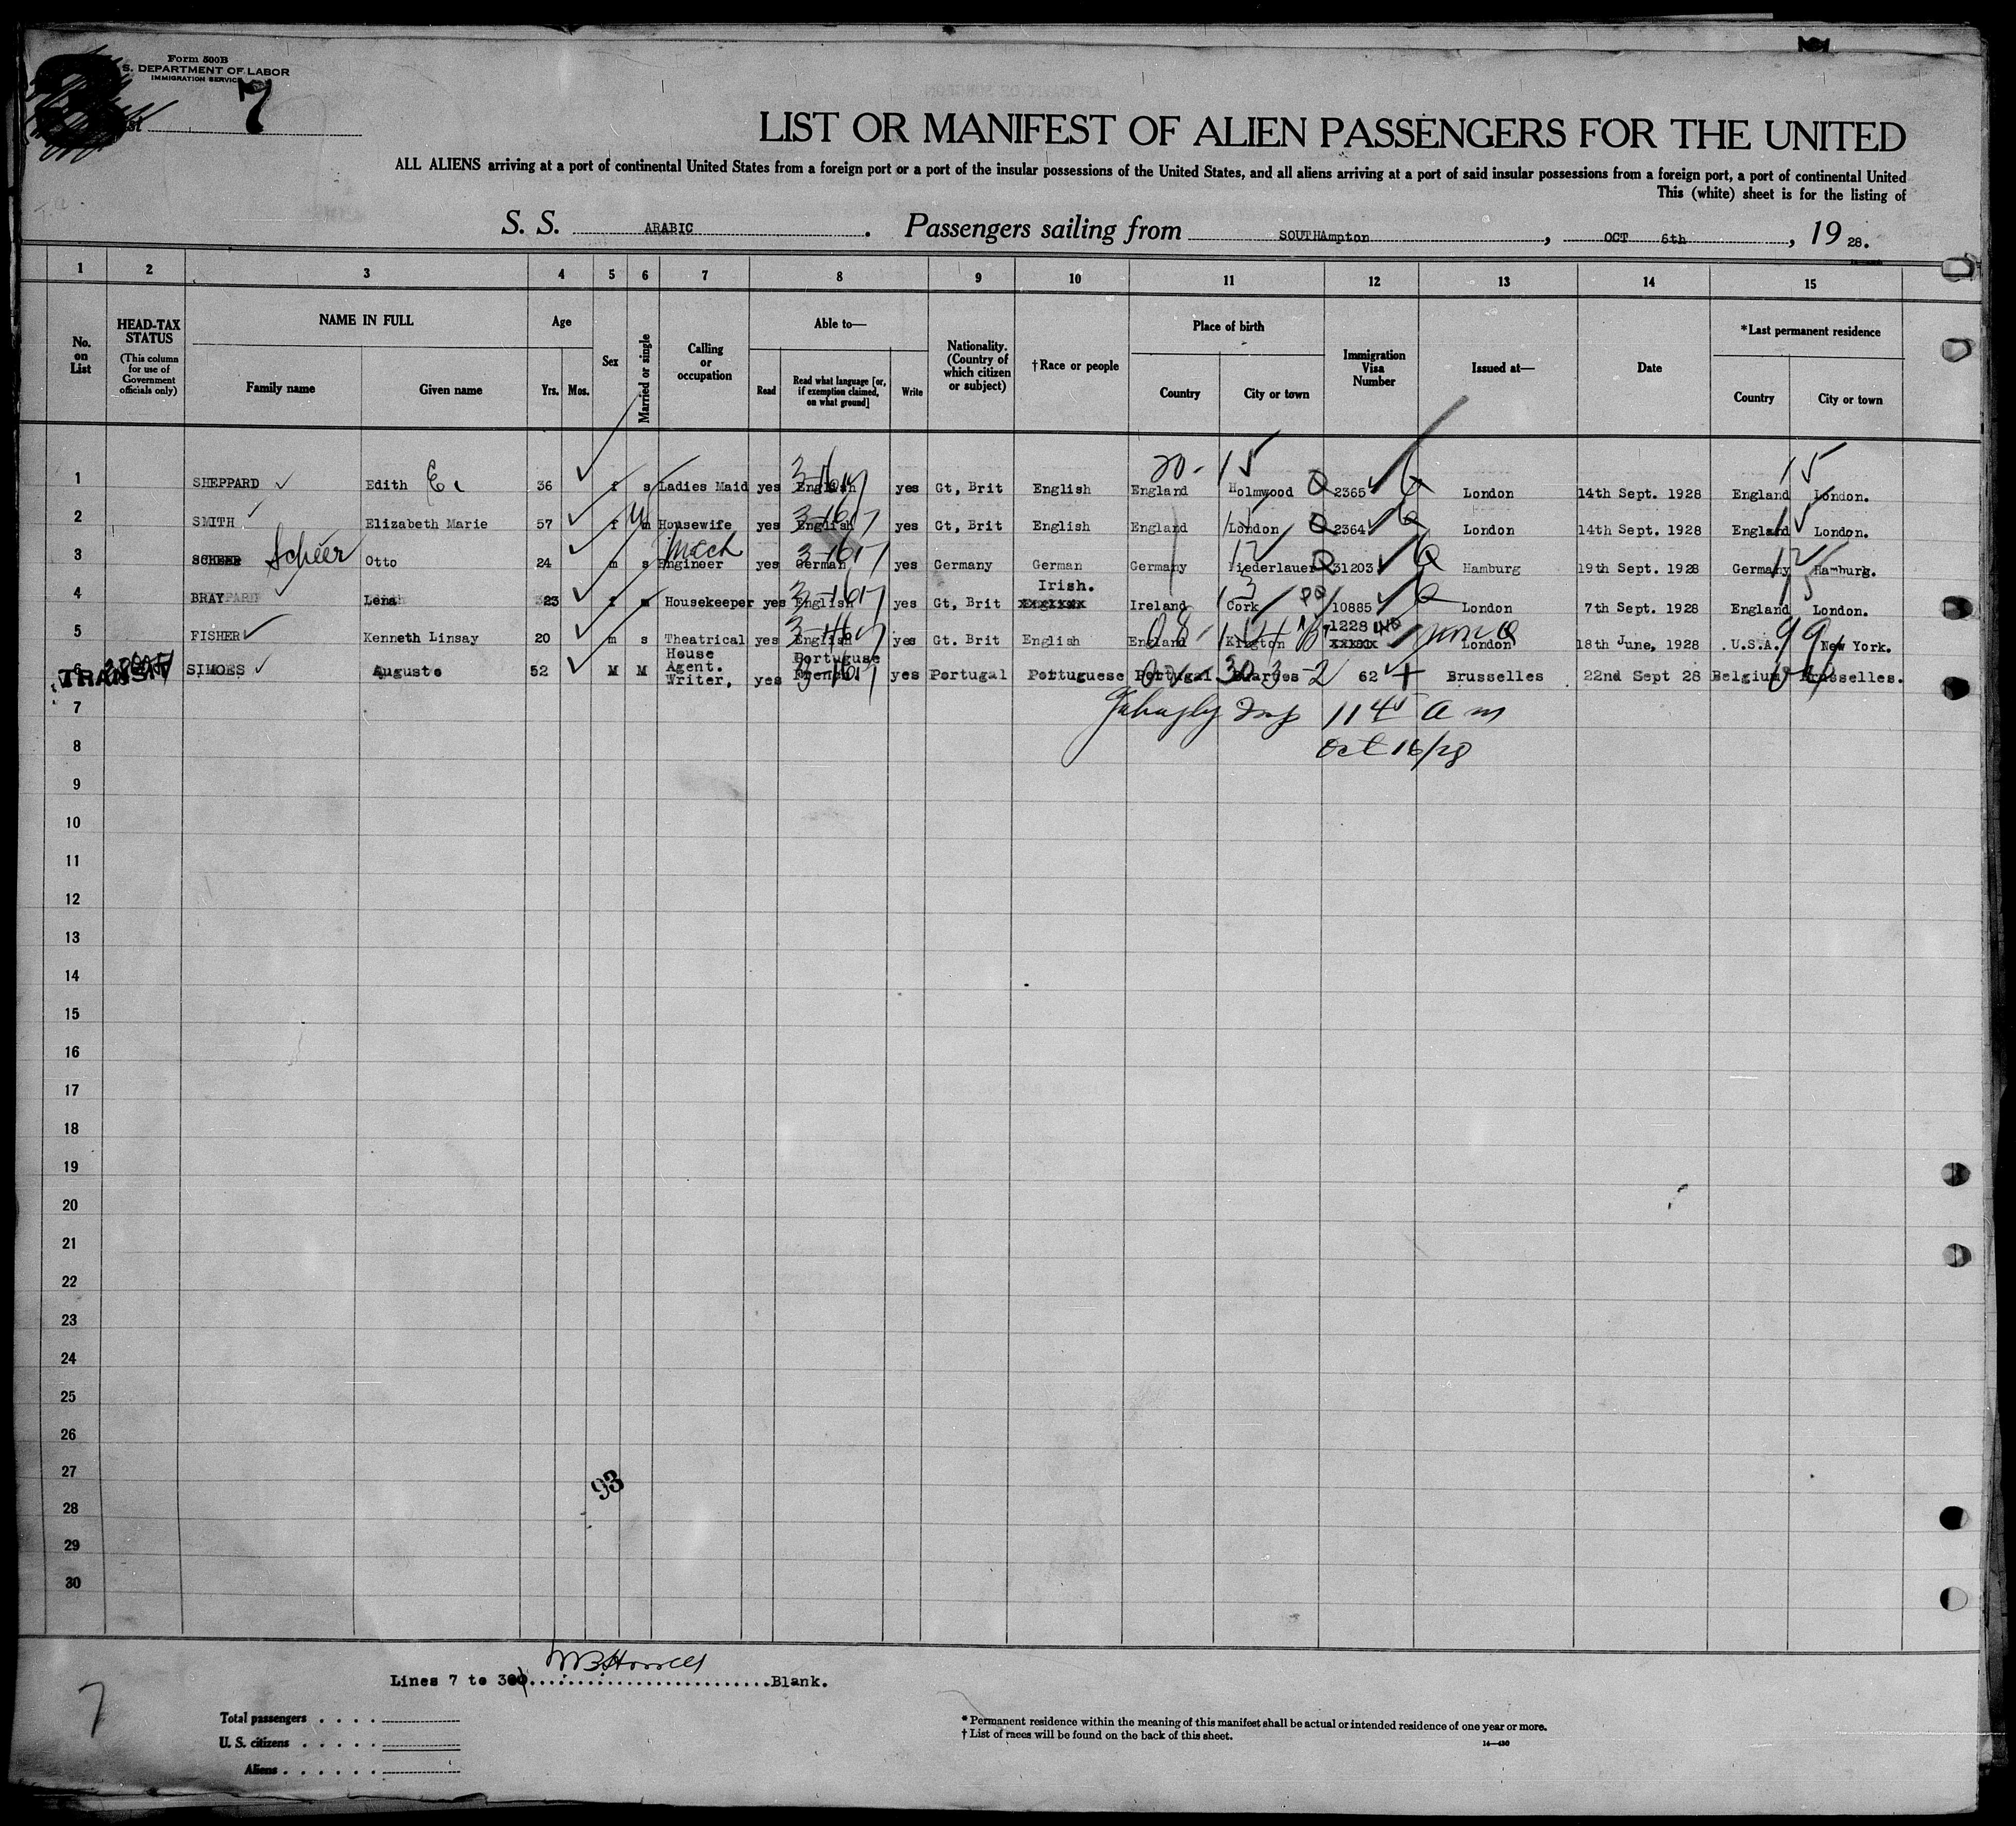 Form 500B
S. DEPARTMENT OF LABOR
IMMIGRATION SERVICE
7
LIST OR MANIFEST OF ALIEN PASSENGERS FOR THE UNITED
ALL ALIENS arriving at a port of continental United States from a foreign port or a port of the insular possessions of the United States, and all aliens arriving at a port of said insular possessions from a foreign port, a port of continental United
This (white) sheet is for the listing of
S. S. ARABIC. Passengers sailing from SOUTHAmpton, OCT 6th, 19 28.
1 2 3 4 5 6 7 8 9 10 11 12 13 14 15
No. on List
HEAD-TAX STATUS (This column for use of Government officials only)
NAME IN FULL Family name Given name
Age Yrs. Mos.
Sex
Married or single
Calling or occupation
Able to— Read Read what language [or, if exemption claimed, on what ground] Write
Nationality. (Country of which citizen or subject)
†Race or people
Place of birth Country City or town
Immigration Visa Number
Issued at—
Date
*Last permanent residence Country City or town
20- 15 15
1 SHEPPARD Edith E. 36 f s Ladies Maid yes English yes Gt, Brit English England Holmwood Q 2365 Q London 14th Sept. 1928 England London.
2 SMITH Elizabeth Marie 57 f m Housewife yes English yes Gt, Brit English England London Q 2364 Q London 14th Sept. 1928 England London.
Mech
3 SCHEER Scheer Otto 24 m s Engineer yes German yes Germany German Germany Niederlauer Q 31203 Q Hamburg 19th Sept. 1928 Germany Hamburg.
Irish.
4 BRAY Lena 23 f m Housekeeper yes English yes Gt, Brit Ireland Cork 10885 Q London 7th Sept. 1928 England London.
1228
5 FISHER Kenneth Linsay 20 m s Theatrical yes English yes Gt. Brit English England xxxxx London 18th June, 1928 U.S.A. New York.
House Portuguse
Agent.
TRANSIT 6 SIMOES Augusto 52 M M Writer, yes French yes Portugal Portuguese Portugal 62 Brusselles 22nd Sept 28 Belgium Brusselles.
7 Insp 11 45 a m
8 Oct 16/28
9
10
11
12
13
14
15
16
17
18
19
20
21
22
23
24
25
26
27
93
28
29
30
Lines 7 to 30 Blank.
7
Total passengers
U. S. citizens
Aliens
* Permanent residence within the meaning of this manifest shall be actual or intended residence of one year or more.
† List of races will be found on the back of this sheet.
14—430